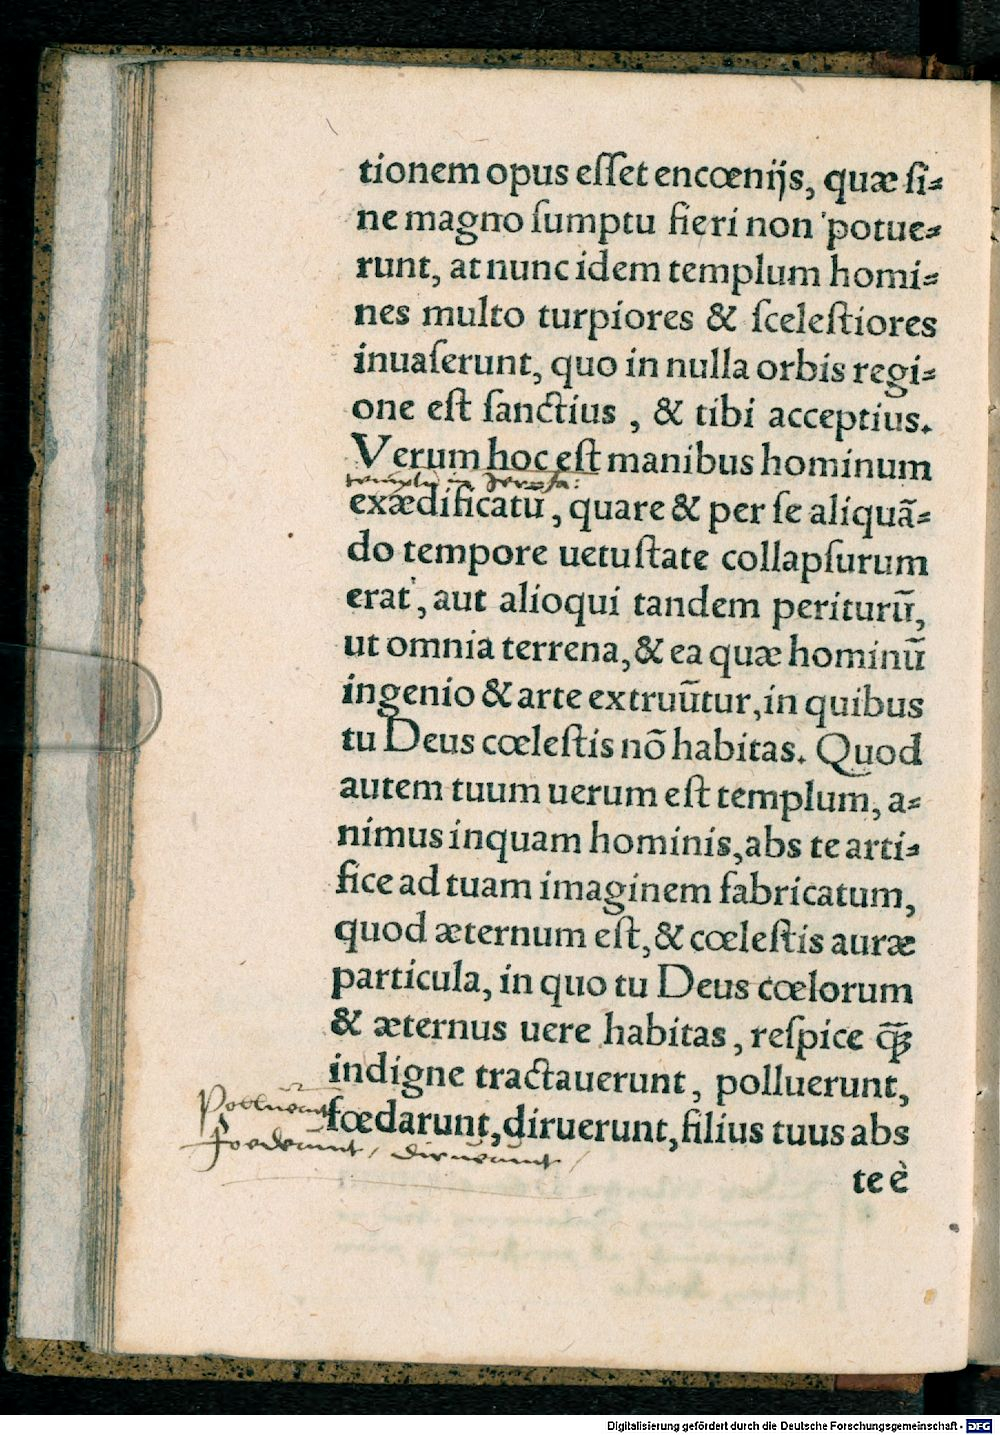 tionem opus eſſet encœnijs, quæ ſi⸗
ne magno ſumptu fieri non potue⸗
runt, at nunc idem templum homi⸗
nes multo turpiores & ſceleſtiores
inuaſerunt, quo in nulla orbis regi⸗
one eſt ſanctius , & tibi acceptius.
Verum hoc eſt manibus hominum
templū in Jerosa:
exædificatū , quare & per ſe aliquā⸗
do tempore uetuſtate collapſurum
erat , aut alioqui tandem periturū,
ut omnia terrena, & ea quæ hominū
ingenio & arte extruūtur, in quibus
tu Deus cœleſtis nō habitas. Quod
autem tuum uerum eſt templum, a⸗
nimus inquam hominis, abs te arti⸗
fice ad tuam imaginem fabricatum,
quod æternum eſt, & cœleſtis auræ
particula, in quo tu Deus cœlorum
& æternus uere habitas , reſpice q̄ꝫ
indigne tractauerunt, polluerunt,
Polluerunt
fœdarunt, diruerunt, filius tuus abs
foederunt / diruerunt /
te è
Digitalisierung gefördert durch die Deutsche Forschungsgemeinschaft - DFG